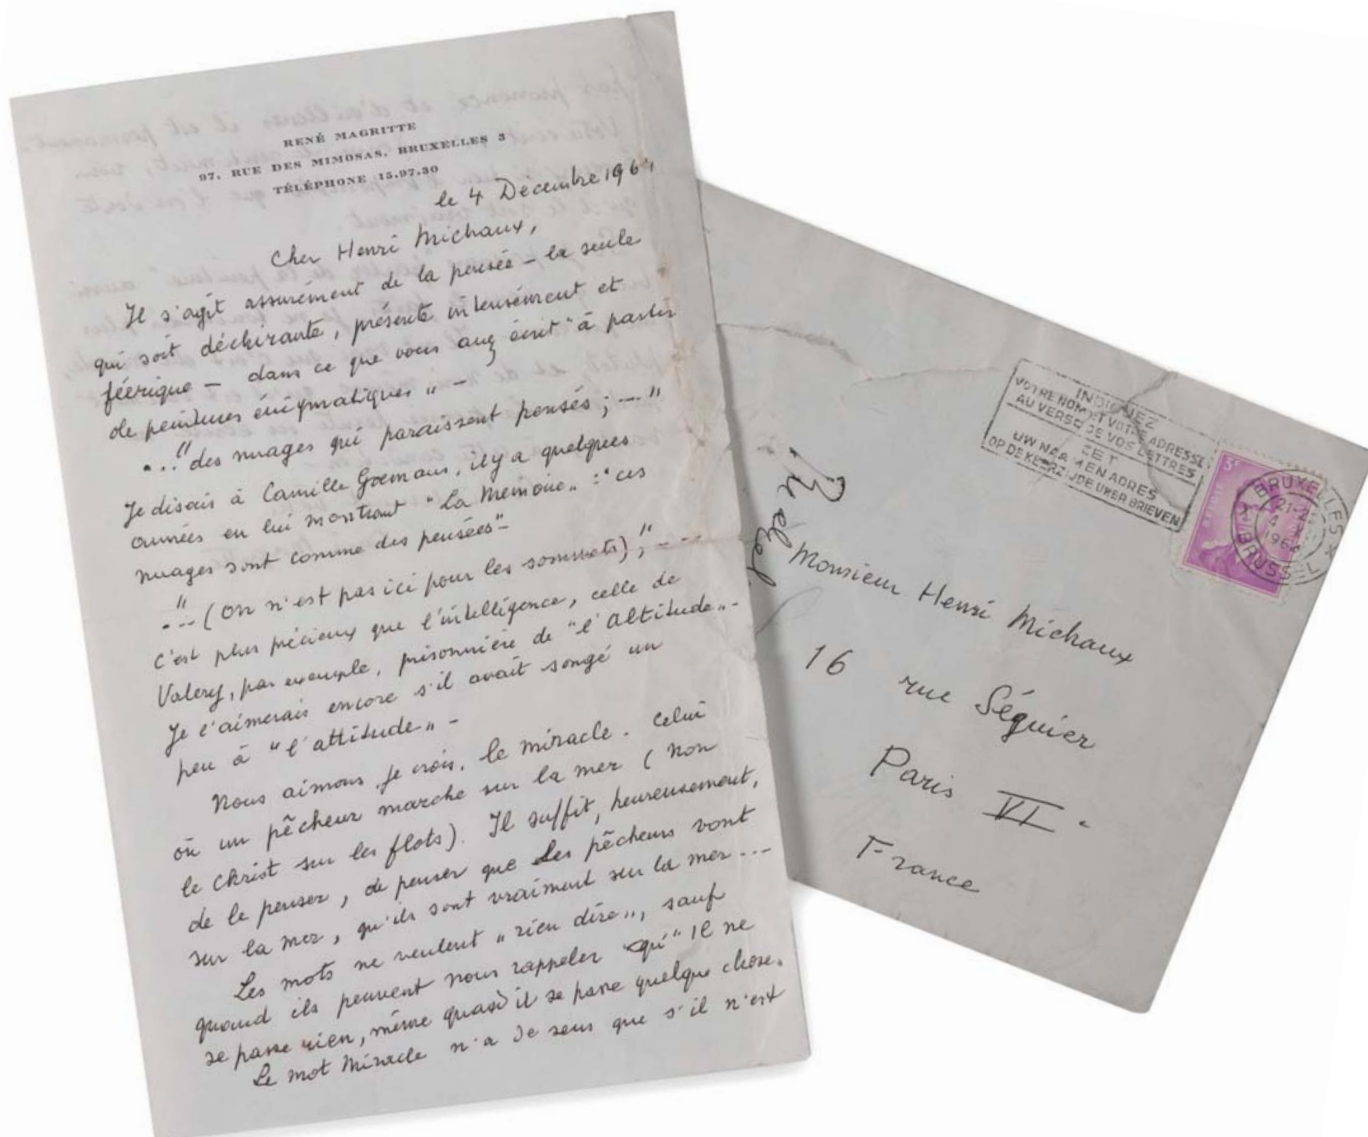 RENÉ MAGRITTE
97, RUE DES MIMOSAS, BRUXELLES 3
TÉLÉPHONE 15.97.30
le 4 Decembre 1964
Cher Henri Michaux,
Il s'agit assurément de la pensée – la seule
qui soit déchirante, présente intensément et
féerique – dans ce que vous avez écrit "à partir
de peintures énigmatiques" –
..." des nuages qui paraissent pensés ; ---"
Je disais à Camille Goemans, il y a quelques
années en lui montrant "La Mémoire" : "ces
nuages sont comme des pensées" –
"--- (on n'est pas ici pour les sommets) ;" ---
C'est plus précieux que l'intelligence, celle de
Valery, par exemple, prisonnière de "l'altitude" –
Je l'aimerais encore s'il avait songé un
peu à "l'attitude" –
Nous aimons, je crois, le miracle. Celui
où un pêcheur marche sur la mer (non
le Christ sur les flots). Il suffit, heureusement,
de le penser, de penser que les pêcheurs vont
sur la mer, qu'ils sont vraiment sur la mer ---
Les mots ne veulent "rien dire", sauf
quand ils peuvent nous rappeler qu' "Il ne
se passe rien, même quand il se passe quelque chose.
Le mot Miracle n'a de sens que s'il n'est
INDIQUEZ
VOTRE NOM ET VOTRE ADRESSE
AU VERSO DE VOS LETTRES
ZET
UW NAAM EN ADRES
OP DE KEERZIJDE UWER BRIEVEN
3F
BRUXELLES X
21-2
4
XII
1964
BRUSSEL
Monsieur Henri Michaux
16 rue Séguier
Paris VI.
France